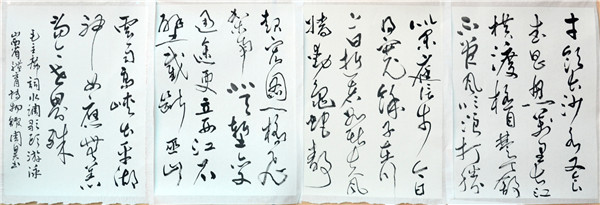 才饮长沙水又食
武昌鱼万里长江
横渡极目楚天舒
不管风吹浪打胜
似闲庭信步今日
得宽馀子在川
上曰逝者如斯夫风
樯动龟蛇静
起宏图一桥飞
架南北天堑变
通途更立西江石
壁截断巫山
云雨高峡出平湖
神女应无恙
当惊世界殊
毛主席词水调歌头游泳
体育博物馆周